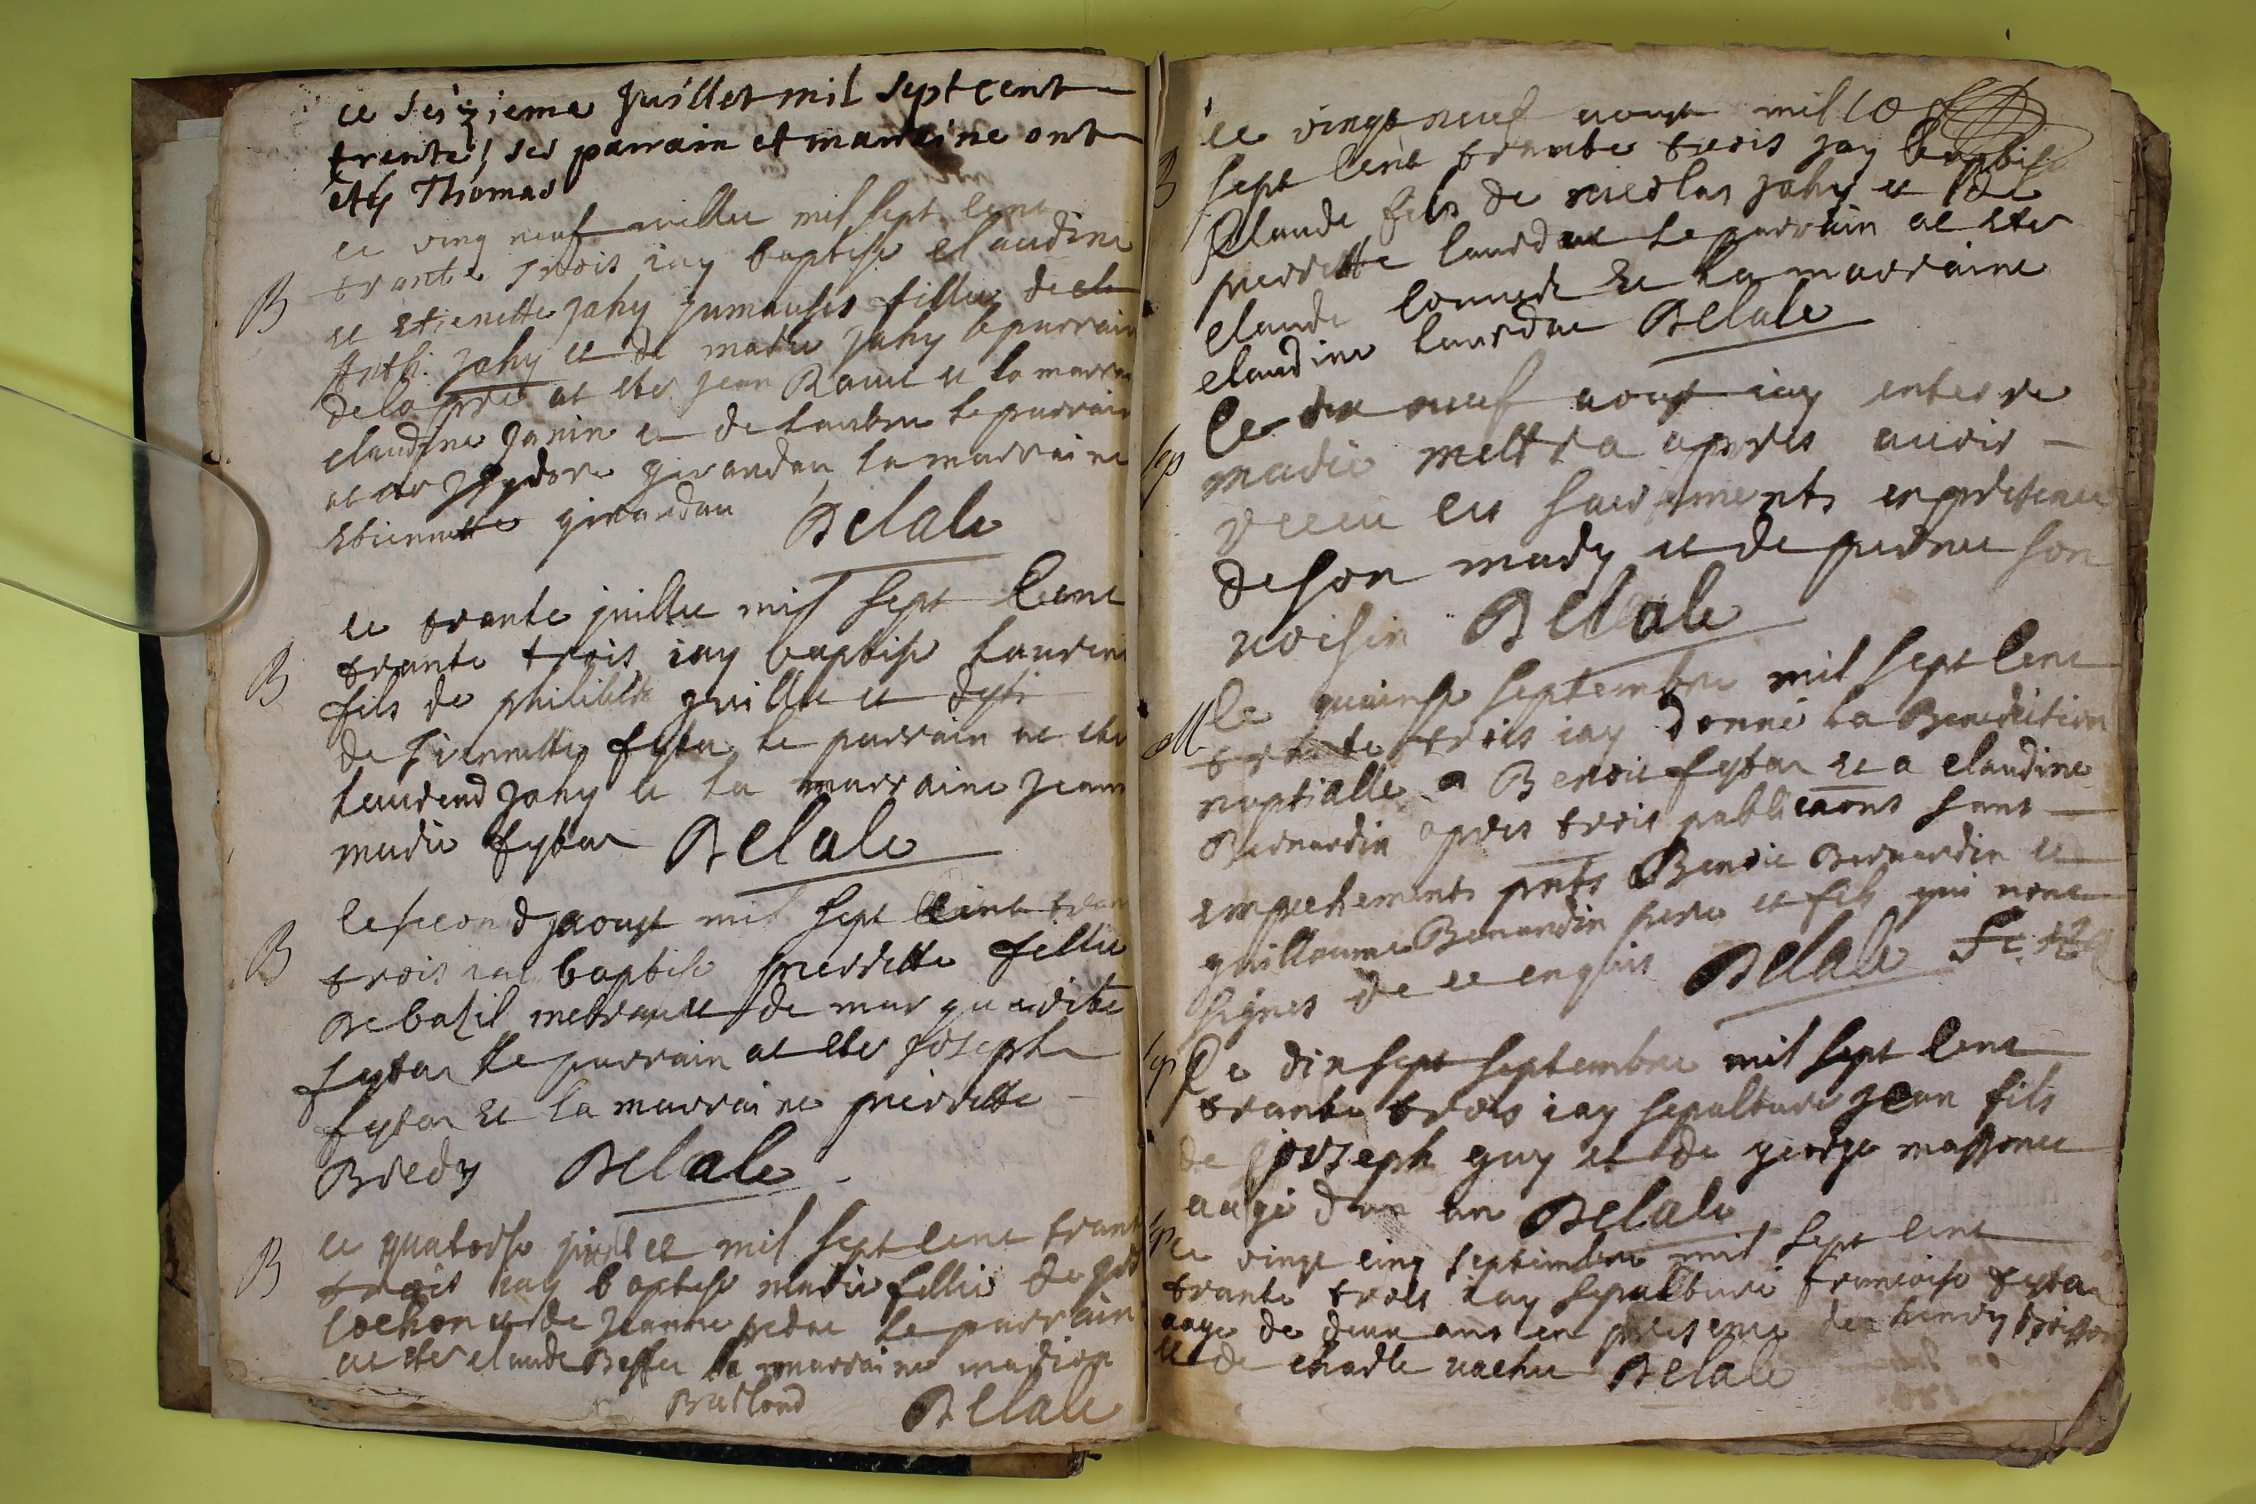 ce seizieme Juillet mil sept cent
trente, ses parrain et marraine ont
ety Thomas
B
ce ving neuf mil sept cent
trante trois iay baptise claudine
et etienette jahy filles de
Anth. jahy et de jahy le parrain
de la at ete jean et la marr
claudine janin et de le parrain
at girandau la marraine
etiennette girandau Delale
B
ce trante juillie mil sept cent
trante trois iay baptise laurent
fils de philibert et
de fytar le parrain at ete
laurend jahy et la marraine jeann
marie fytar Delale
B
le second aoust mil sept cent tran
trois iai baptise pierrette fillie
de bazil metra et de marguerite
fytar le parrain at ete joseph
fytar et la marraine pierrette
Bredy Delale
B
ce quatorse mil sept cent trant
trois iay baptise marie fillie de
cochon et de jeanne le parrain
at ete claude la marraine
Delale
B
ce vingt neuf aoust mil
sept cent trante trois jay baptise
Claude fils de nicolas jahy et de
pierrette le parrain at ete
claude et la marraine
claudine Delale
sep
Ce dix neuf aoust iay enterre
marie mettra apres avoir
receu les sacrements en presence
de son mary et de pierre son
voisin Delale
M
Ce quinse septembre mil sept cent
trante trois iay donné la Benediction
nuptialle a Benoit fytar et a claudine
Bernardin apres trois publicaons sans
empechements pnts Benoit Bernardin et
guillaume Bernardin pere et fils qui nont
signes de ce enquis Delale
sep
Ce dix sept septembre mil sept cent
trante trois iay sepulture jean fils
de joseph guy et de george
aagé dun an Delale
sep
Ce vingt cinq septembre mil sept cent
trante trois iay sepulture francoise fytar
aage de deux ans en presence de henry
et de charle vachie Delale